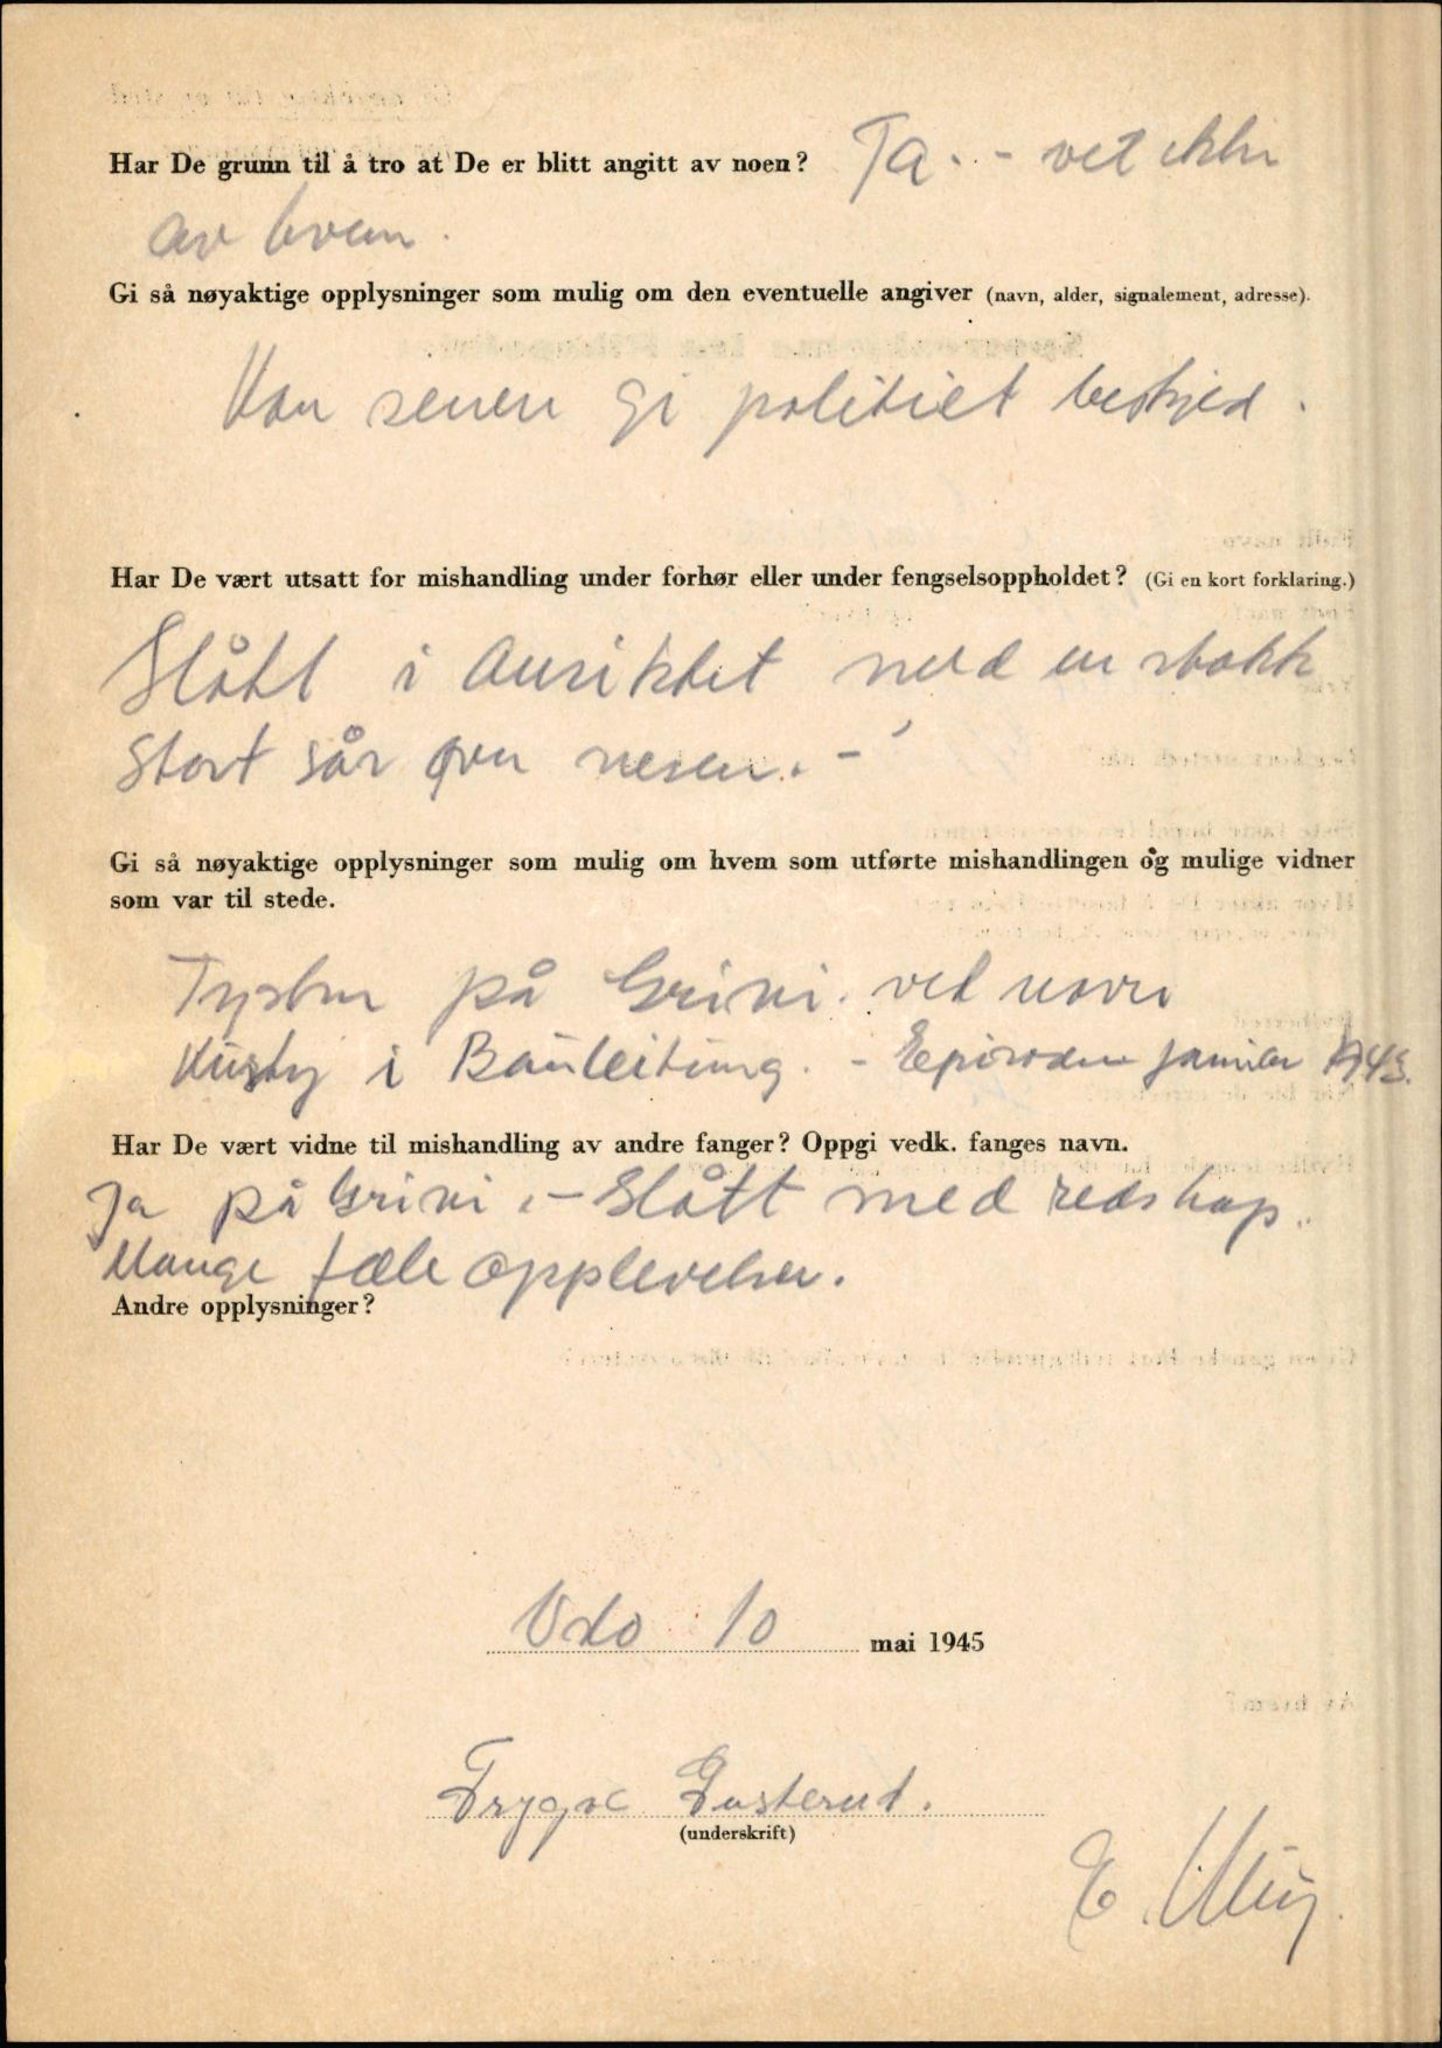 Har De grunn til å tro at De er blitt angitt av noen? Ja. - vet ikke
av hvem.
Gi så nøyaktige opplysninger som mulig om den eventuelle angiver (navn, alder, signalement, adresse).
Kan senere gi politiet beskjed.
Har De vært utsatt for mishandling under forhør eller under fengselsoppholdet? (Gi en kort forklaring.)
Slått i ansiktet med en stokk
Stort sår over nesen. -
Gi så nøyaktige opplysninger som mulig om hvem som utførte mishandlingen og mulige vidner
som var til stede.
Tysker på Grini. ved navn
i Bauleitung. - Episoden januar 1943.
Har De vært vidne til mishandling av andre fanger? Oppgi vedk. fanges navn.
Ja på Grini. - Slått med redskap.
Mange fæle opplevelser.
Andre opplysninger?
Oslo 10 mai 1945
Trygve
(underskrift)
E.